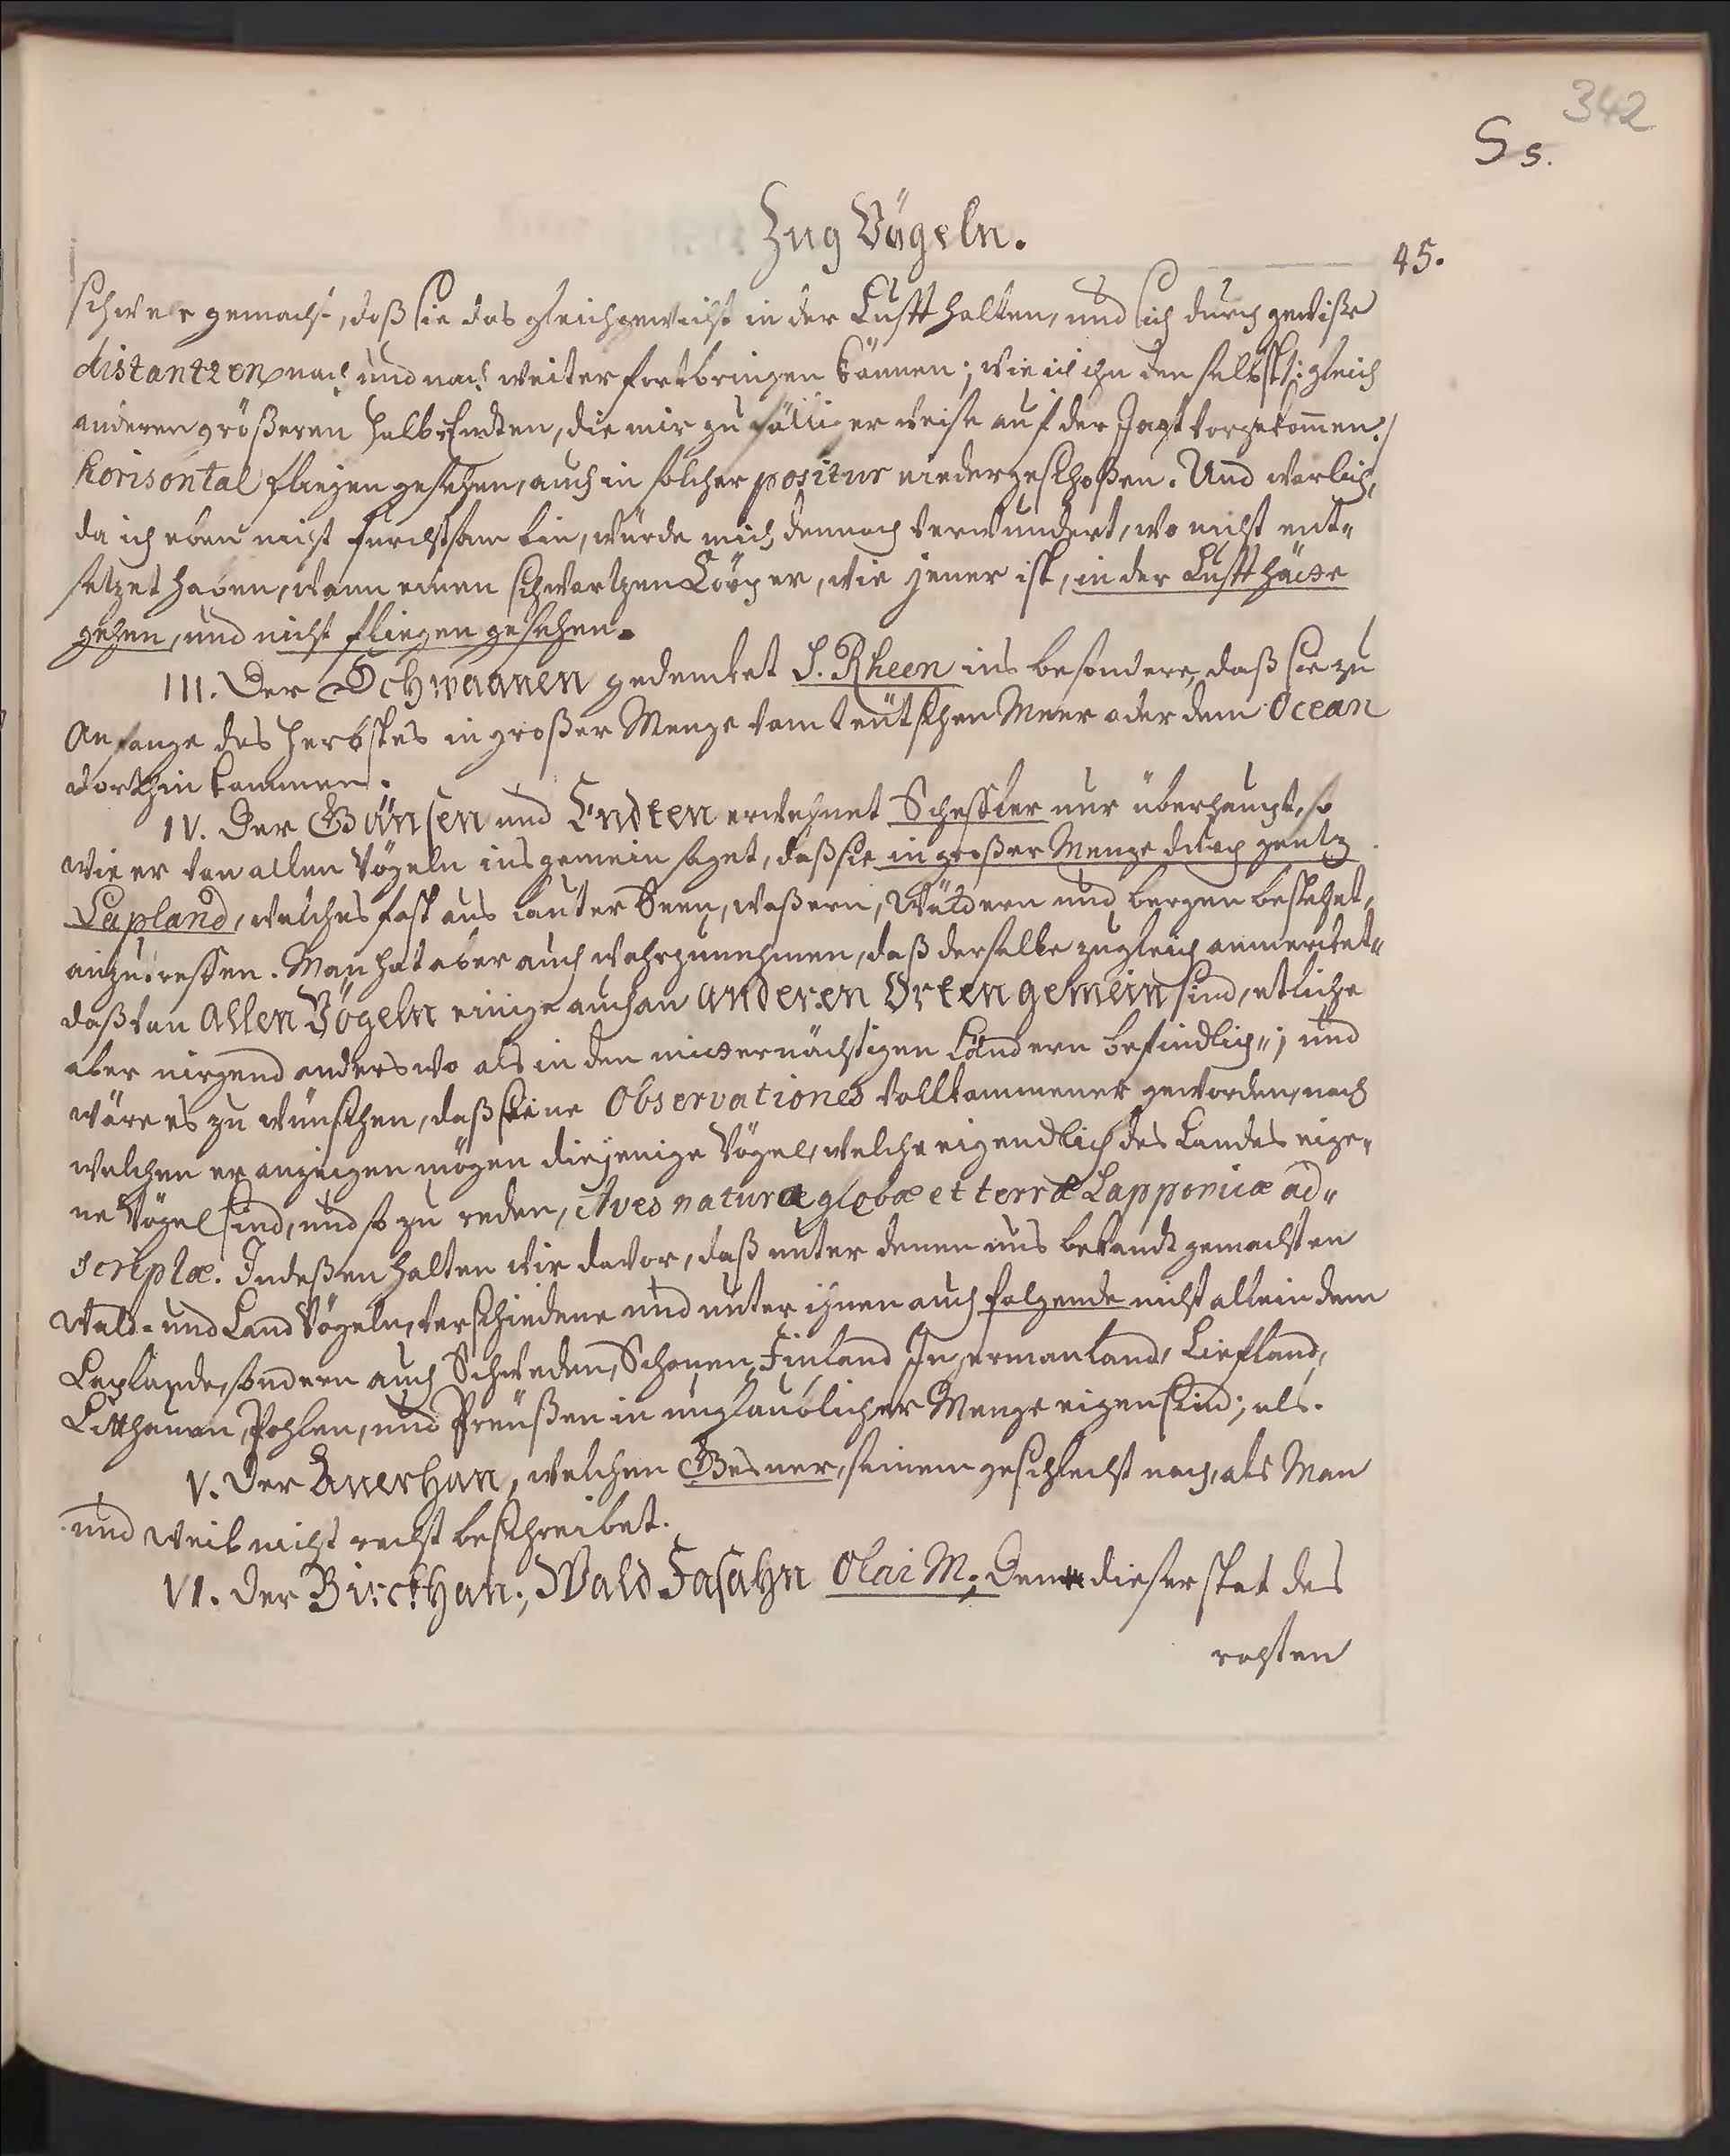 342
S s.
Zug Vögeln.
45.
schwer gemacht, daß sie das gleichgewicht in der Lufft halten, und sich durch gewiße
distantzen nach und nach weiter fortbringen können; wie ich ihn denselbst: gleich
anderen größeren halb Endten, die mir zufälliger weise auf der Jagt vorgekom̄en:/
horisontal fliegen gesehen, auch in solcher positur niedergeschoßen. Und warlich,
da ich eben nicht furchtsam bin, würde mich dennoch verwundert, wo nicht ent„
setzet haben, wann einen schwartzen Cörper, wie jener ist, in der Lufft hätte
gehen, und nicht fliegen gesehen.
III. Der Schwaanen gedencket S. Rheen ins besondere, daß sie zu
Anfange des Herbstes in großer Menge vom teutschen Meer oder dem Ocean
dorthin kommen.
IV. Der Gänsen und Endten erwehnet Scheffer nur überhaupt, so
wie er von allen Vögeln ins gemein saget, daß sie in großer Menge durch gantz
Lapland, welches fast aus lauter Seen, waßern, Wäldern und bergen bestehet,
anzutreffen. Man hat aber auch wahrzunehmen, daß derselbe zugleich anmercket„
daß von Allen Vögeln einige auch an anderen Orten gemein sind, etliche
aber nirgend anderswo als in den mitternächtigen Ländern befindlich„; und
wäre es zu wünschen, daß seine Observationes vollkommener geworden, nach
welchen er anzeigen mögen diejenige Vögel, welche eigendlich des Landes eige„
ne Vögel sind, und so zu reden, Aves naturæ glebæ et terræ Lapponicæ ad„
scriptæ. Indeßen halten wir davor, daß unter denen uns bekandt gemachten
Wald- und Land Vögeln, verschiedene und unter ihnen auch folgende nicht allein dem
Laplande, sondern auch Schweden, Schonen, Finland Ingermanland, Liefland,
Litthauen, Pohlen, und Preußen in unglaublicher Menge eigen sind; als.
V. Der Auerhan, welchen Gesner, seinem geschlecht nach, als Man
und Weib nicht recht beschreibet.
VI. Der Birckhan; Wald Fasahn Olai M. Denn dieser stat des
rohten